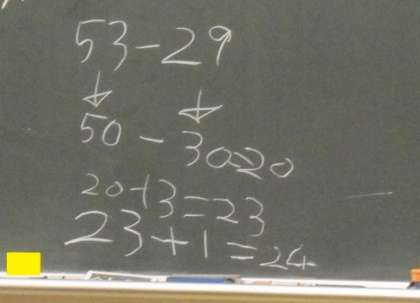 53-29
↓ ↓
50-30=20
20+3=23
23+1=24